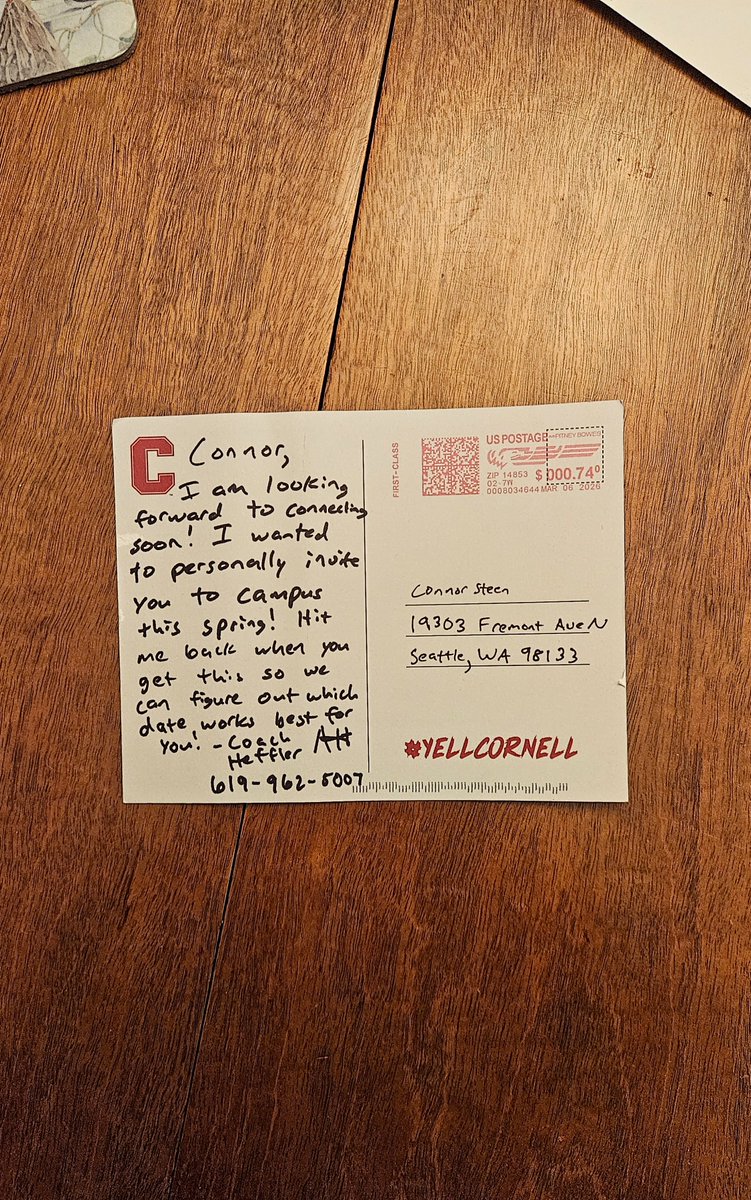 C
Connor,
I am looking
forward to connecting
soon! I wanted
to personally invite
you to campus
this spring! Hit
me back when you
get this so we
can figure out which
date works best for
you! - Coach
Heffler AH
619-962-5007
FIRST-CLASS
US POSTAGE PITNEY BOWES
ZIP 14853
02 7W
$ 000.74⁰
0008034644 MAR 06 2026
Connor Steen
19303 Fremont Ave N
Seattle, WA 98133
#YELLCORNELL